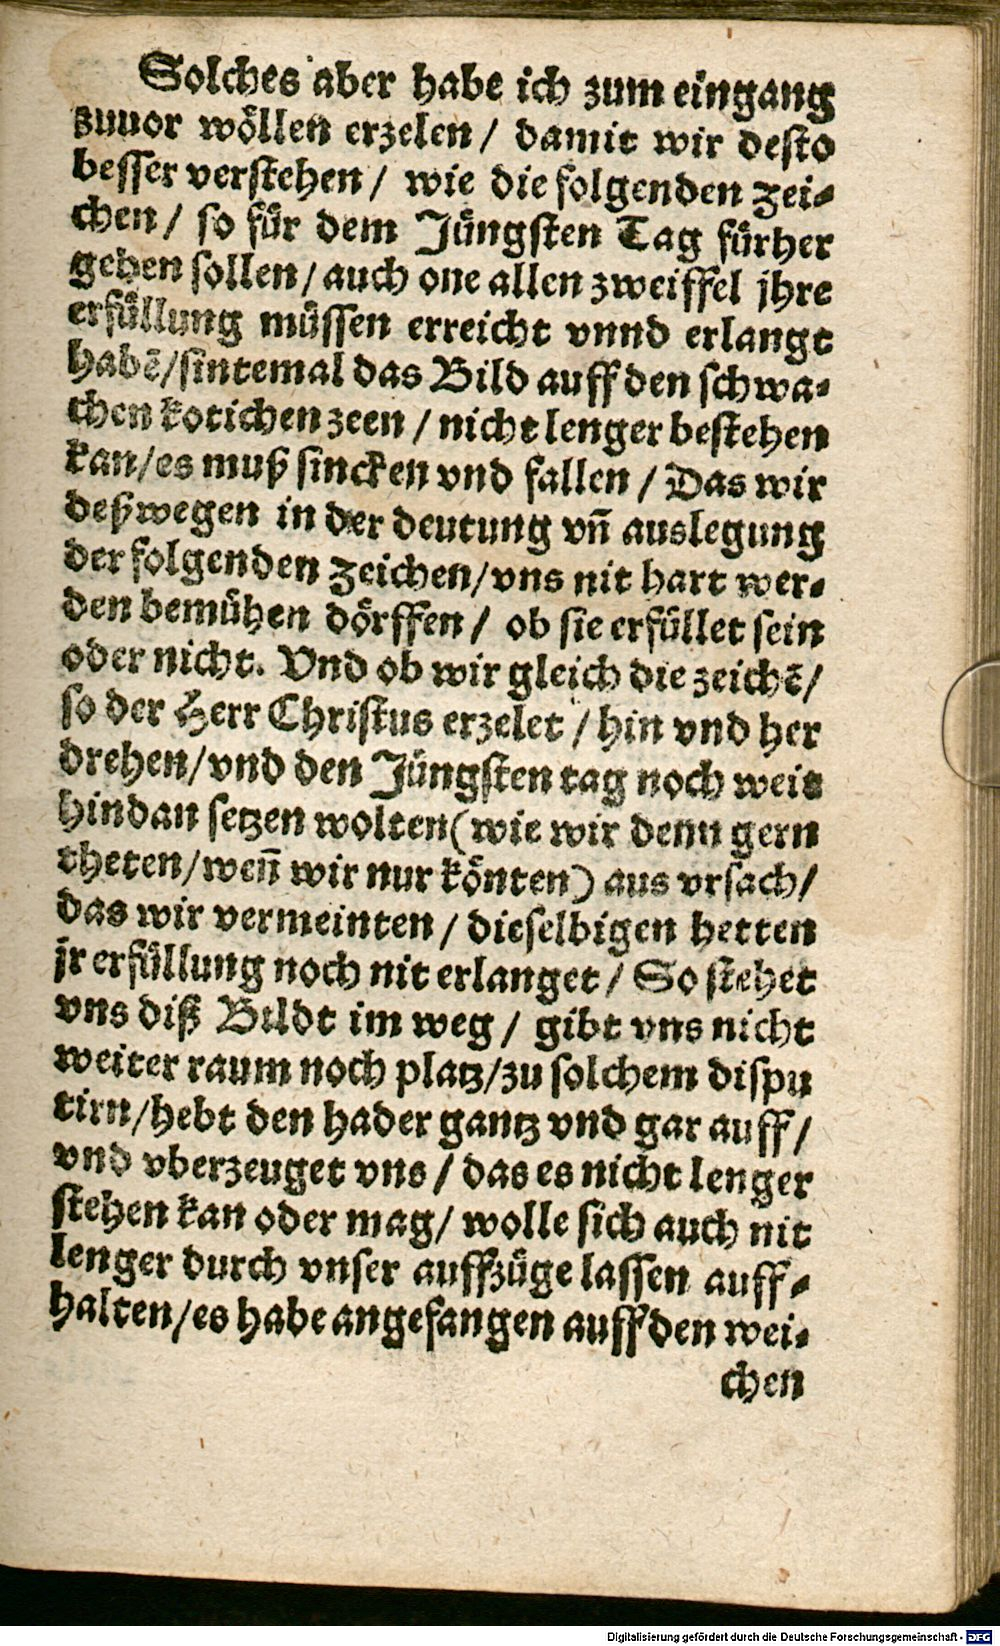 Solches aber habe ich zum eingang
zuuor wöllen erzelen / damit wir desto
besser verstehen / wie die folgenden zei⸗
chen / so für dem Jüngsten Tag fürher
gehen sollen / auch one allen zweiffel jhre
erfüllung müssen erreicht vnnd erlangt
habē/sintemal das Bild auff den schwa⸗
chen kotichen zeen / nicht lenger bestehen
kan/es muß sincken vnd fallen / Das wir
deßwegen in der deutung vn̄ auslegung
der folgenden zeichen/vns nit hart wer⸗
den bemühen dörffen / ob sie erfüllet sein
oder nicht. Vnd ob wir gleich die zeichē/
so der Herr Christus erzelet / hin vnd her
drehen/vnd den Jüngsten tag noch weit
hindan setzen wolten(wie wir denn gern
theten/wen̄ wir nur könten) aus vrsach/
das wir vermeinten / dieselbigen hetten
jr erfüllung noch nit erlanget / So stehet
vns diß Bildt im weg / gibt vns nicht
weiter raum noch platz/zu solchem dispu
tirn/hebt den hader gantz vnd gar auff/
vnd vberzeuget vns / das es nicht lenger
stehen kan oder mag/ wolle sich auch nit
lenger durch vnser auffzüge lassen auff⸗
halten/es habe angefangen auff den wei⸗
chen
Digitalisierung gefördert durch die Deutsche Forschungsgemeinschaft - DFG